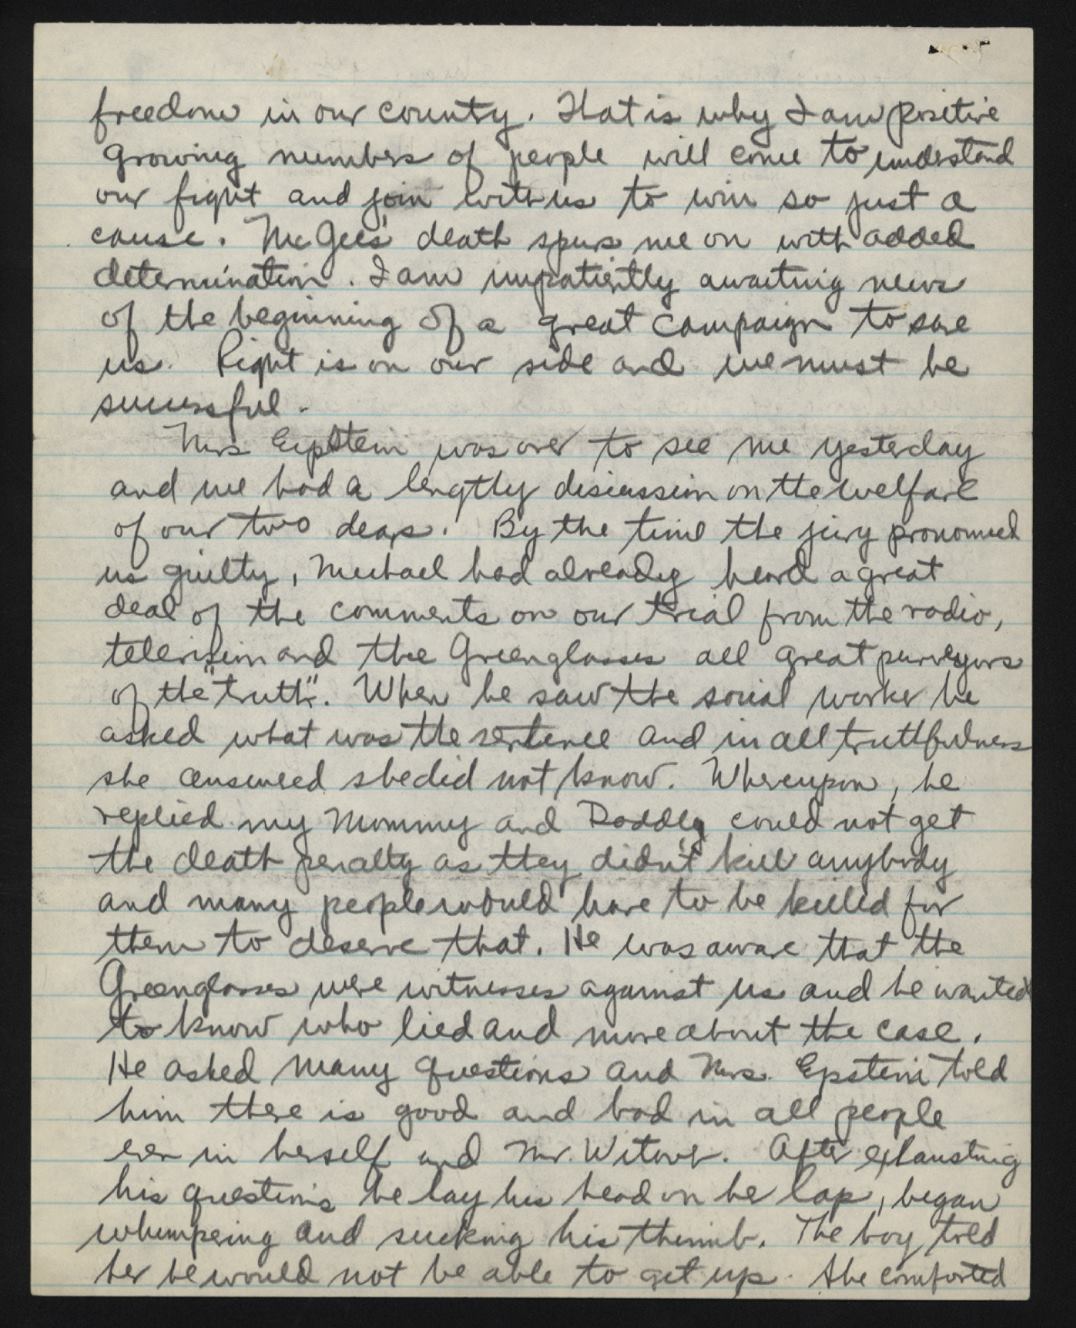 freedom in our county. That is why I am positive
growing numbers of people will come to understand
our fight and join with us to win so just a
cause. McGee's death spurs me on with added
determination. I am impatiently awaiting news
of the beginning of a great campaign to save
us. Right is on our side and we must be
successful.
Mrs Epstein was over to see me yesterday
and we had a lengthy discussion on the welfare
of our two dears. By the time the jury pronounced
us guilty, Michael had already heard a great
deal of the comments on our trial from the radio,
television and the Greenglasses all great purveyors
of the "truth". When he saw the social worker he
asked what was the sentence and in all truthfulness
she answered she did not know. Whereupon, he
replied my Mommy and Daddy could not get
the death penalty as they didn't kill anybody
and many people would have to be killed for
them to deserve that. He was aware that the
Greenglasses were witnesses against us and he wanted
to know who lied and more about the case.
He asked many questions and Mrs. Epstein told
him there is good and bad in all people
even in herself and Mr. Witover. After exhausting
his questions he lay his head on he lap, began
whimpering and sucking his thumb. The boy told
her he would not be able to get up. She comforted